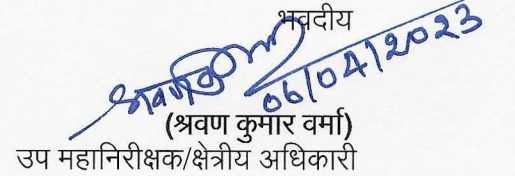 भवदीय
श्रवण कुमार
06/04/2023
(श्रवण कुमार वर्मा)
उप महानिरीक्षक/क्षेत्रीय अधिकारी